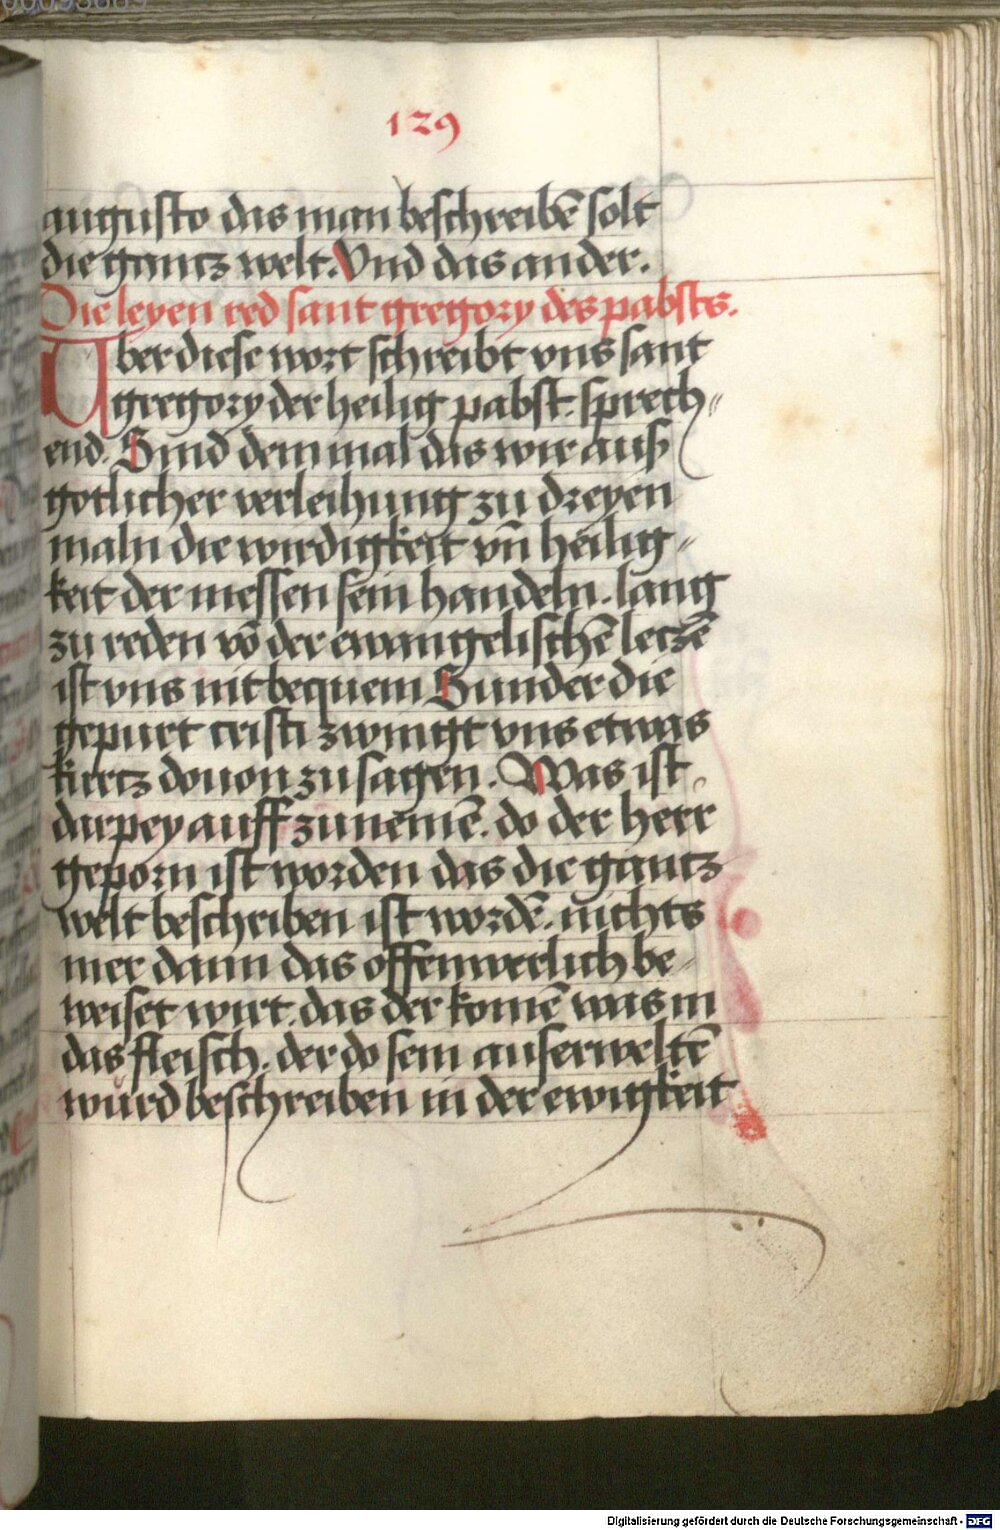 129
augusto das man beschreibē solt
die gantz welt. Vnd das ander.
Die leyen red sant gregory des pabsts.
Vber diese wort schreibt vns sant
gregory der heilig pabst. sprech〃
end. Sind dem mal das wir auß
gotlicher verleihung zu dreyen
maln die wirdigkeit vn̄ heilig〃
keit der messen sein handeln. lang
zu reden vō der ewangelischē leczē
ist vns nit bequem Sunder die
gepurt cristi zwingt vns etwas
kurtz douon zu sagen. Was ist
darpey auff zunemē. do der herr
geporn ist worden das die gantz
welt beschriben ist wordē. nichts
mer dann das offenwerlich be〃
weiset wirt. das der komē was in
das fleisch. der do sein auserweltē
wurd beschreiben in der ewigkeit
Digitalisierung gefördert durch die Deutsche Forschungsgemeinschaft - DFG